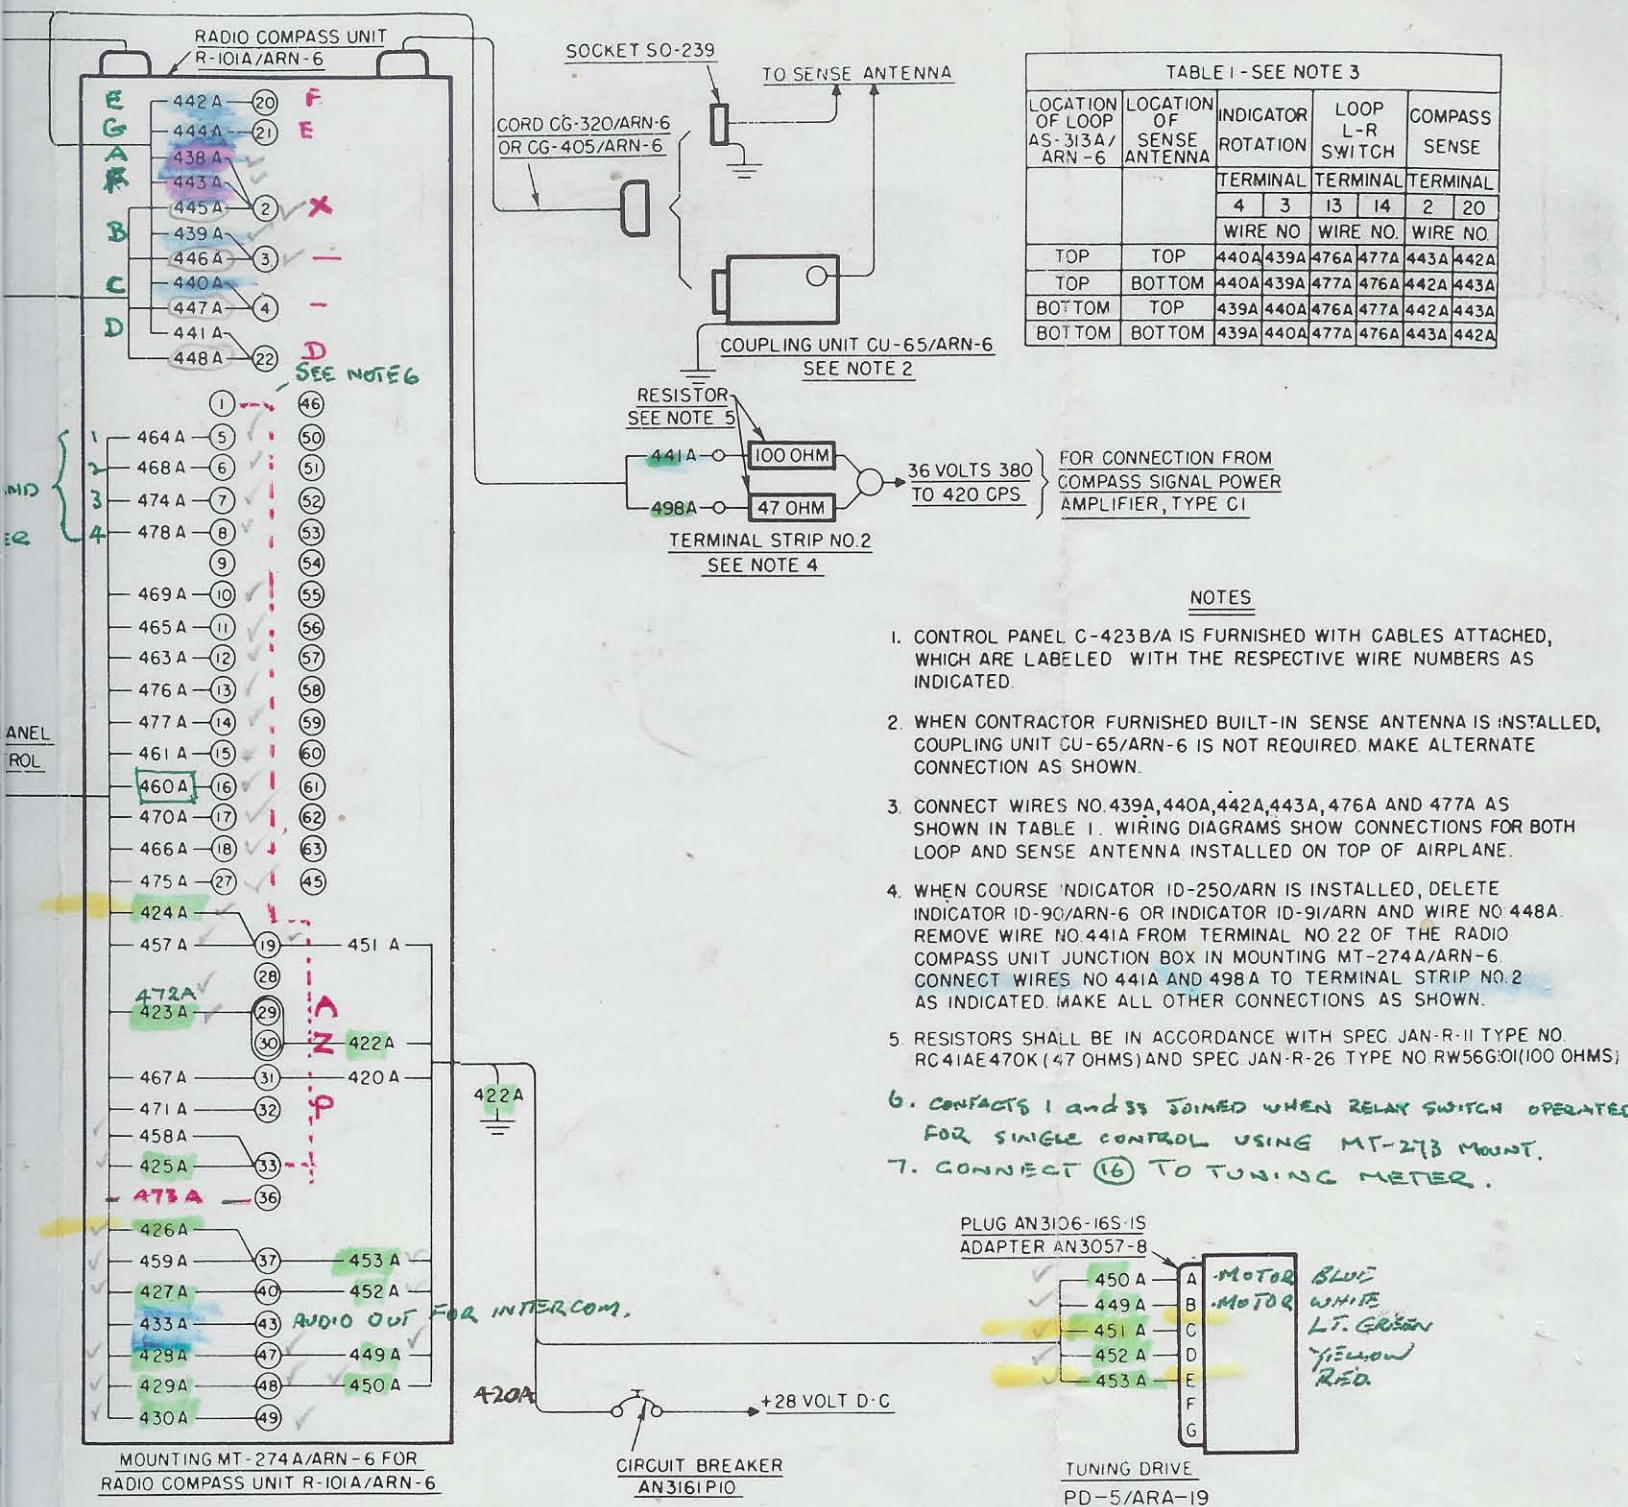 RADIO COMPASS UNIT
R-101A/ARN-6
E 442A 20 F
G 444A 21 E
A 438A
443A
445A 2 X
B 439A
446A 3 —
C 440A
447A 4 -
D 441A
448A 22 D
SEE NOTE 6
1 46
1 464A 5 50
2 468A 6 51
3 474A 7 52
4 478A 8 53
9 54
469A 10 55
465A 11 56
463A 12 57
476A 13 58
477A 14 59
461A 15 60
460A 16 61
470A 17 62
466A 18 63
475A 27 45
424A
457A 19 451 A
28
472A
423A 29
30 422A
467A 31 420A
471A 32 P
458A
425A 33
473A 36
426A
459A 37 453 A
427A 40 452A
433A 43 AUDIO OUT FOR INTERCOM.
428A 47 449A
429A 48 450A
430A 49
MOUNTING MT-274A/ARN-6 FOR
RADIO COMPASS UNIT R-101A/ARN-6
ANEL
ROL
SOCKET SO-239
TO SENSE ANTENNA
CORD CG-320/ARN-6
OR CG-405/ARN-6
COUPLING UNIT CU-65/ARN-6
SEE NOTE 2
RESISTOR
SEE NOTE 5
441A 100 OHM
498A 47 OHM
36 VOLTS 380
TO 420 CPS
FOR CONNECTION FROM
COMPASS SIGNAL POWER
AMPLIFIER, TYPE C1
TERMINAL STRIP NO.2
SEE NOTE 4
TABLE I - SEE NOTE 3
LOCATION OF LOOP AS-313A/ARN-6 LOCATION OF SENSE ANTENNA INDICATOR ROTATION LOOP L-R SWITCH COMPASS SENSE
TERMINAL TERMINAL TERMINAL
4 3 13 14 2 20
WIRE NO WIRE NO. WIRE NO.
TOP TOP 440A 439A 476A 477A 443A 442A
TOP BOTTOM 440A 439A 477A 476A 442A 443A
BOTTOM TOP 439A 440A 476A 477A 442A 443A
BOTTOM BOTTOM 439A 440A 477A 476A 443A 442A
NOTES
1. CONTROL PANEL C-423B/A IS FURNISHED WITH CABLES ATTACHED,
WHICH ARE LABELED WITH THE RESPECTIVE WIRE NUMBERS AS
INDICATED.
2. WHEN CONTRACTOR FURNISHED BUILT-IN SENSE ANTENNA IS INSTALLED,
COUPLING UNIT CU-65/ARN-6 IS NOT REQUIRED. MAKE ALTERNATE
CONNECTION AS SHOWN.
3. CONNECT WIRES NO. 439A, 440A, 442A, 443A, 476A AND 477A AS
SHOWN IN TABLE I. WIRING DIAGRAMS SHOW CONNECTIONS FOR BOTH
LOOP AND SENSE ANTENNA INSTALLED ON TOP OF AIRPLANE.
4. WHEN COURSE INDICATOR ID-250/ARN IS INSTALLED, DELETE
INDICATOR ID-90/ARN-6 OR INDICATOR ID-91/ARN AND WIRE NO 448A.
REMOVE WIRE NO. 441A FROM TERMINAL NO. 22 OF THE RADIO
COMPASS UNIT JUNCTION BOX IN MOUNTING MT-274A/ARN-6.
CONNECT WIRES NO 441A AND 498A TO TERMINAL STRIP NO.2
AS INDICATED. MAKE ALL OTHER CONNECTIONS AS SHOWN.
5. RESISTORS SHALL BE IN ACCORDANCE WITH SPEC. JAN-R-11 TYPE NO.
RC41AE470K (47 OHMS) AND SPEC JAN-R-26 TYPE NO RW56G101(100 OHMS)
6. CONTACTS 1 and 33 JOINED WHEN RELAY SWITCH OPERATED
FOR SINGLE CONTROL USING MT-273 MOUNT.
7. CONNECT 16 TO TUNING METER.
422A
420A
+28 VOLT D-C
CIRCUIT BREAKER
AN3161P10
PLUG AN3106-16S-1S
ADAPTER AN3057-8
450 A A MOTOR BLUE
449A B MOTOR WHITE
451 A C LT. GREEN
452 A D YELLOW
453 A E RED.
F
G
TUNING DRIVE
PD-5/ARA-19